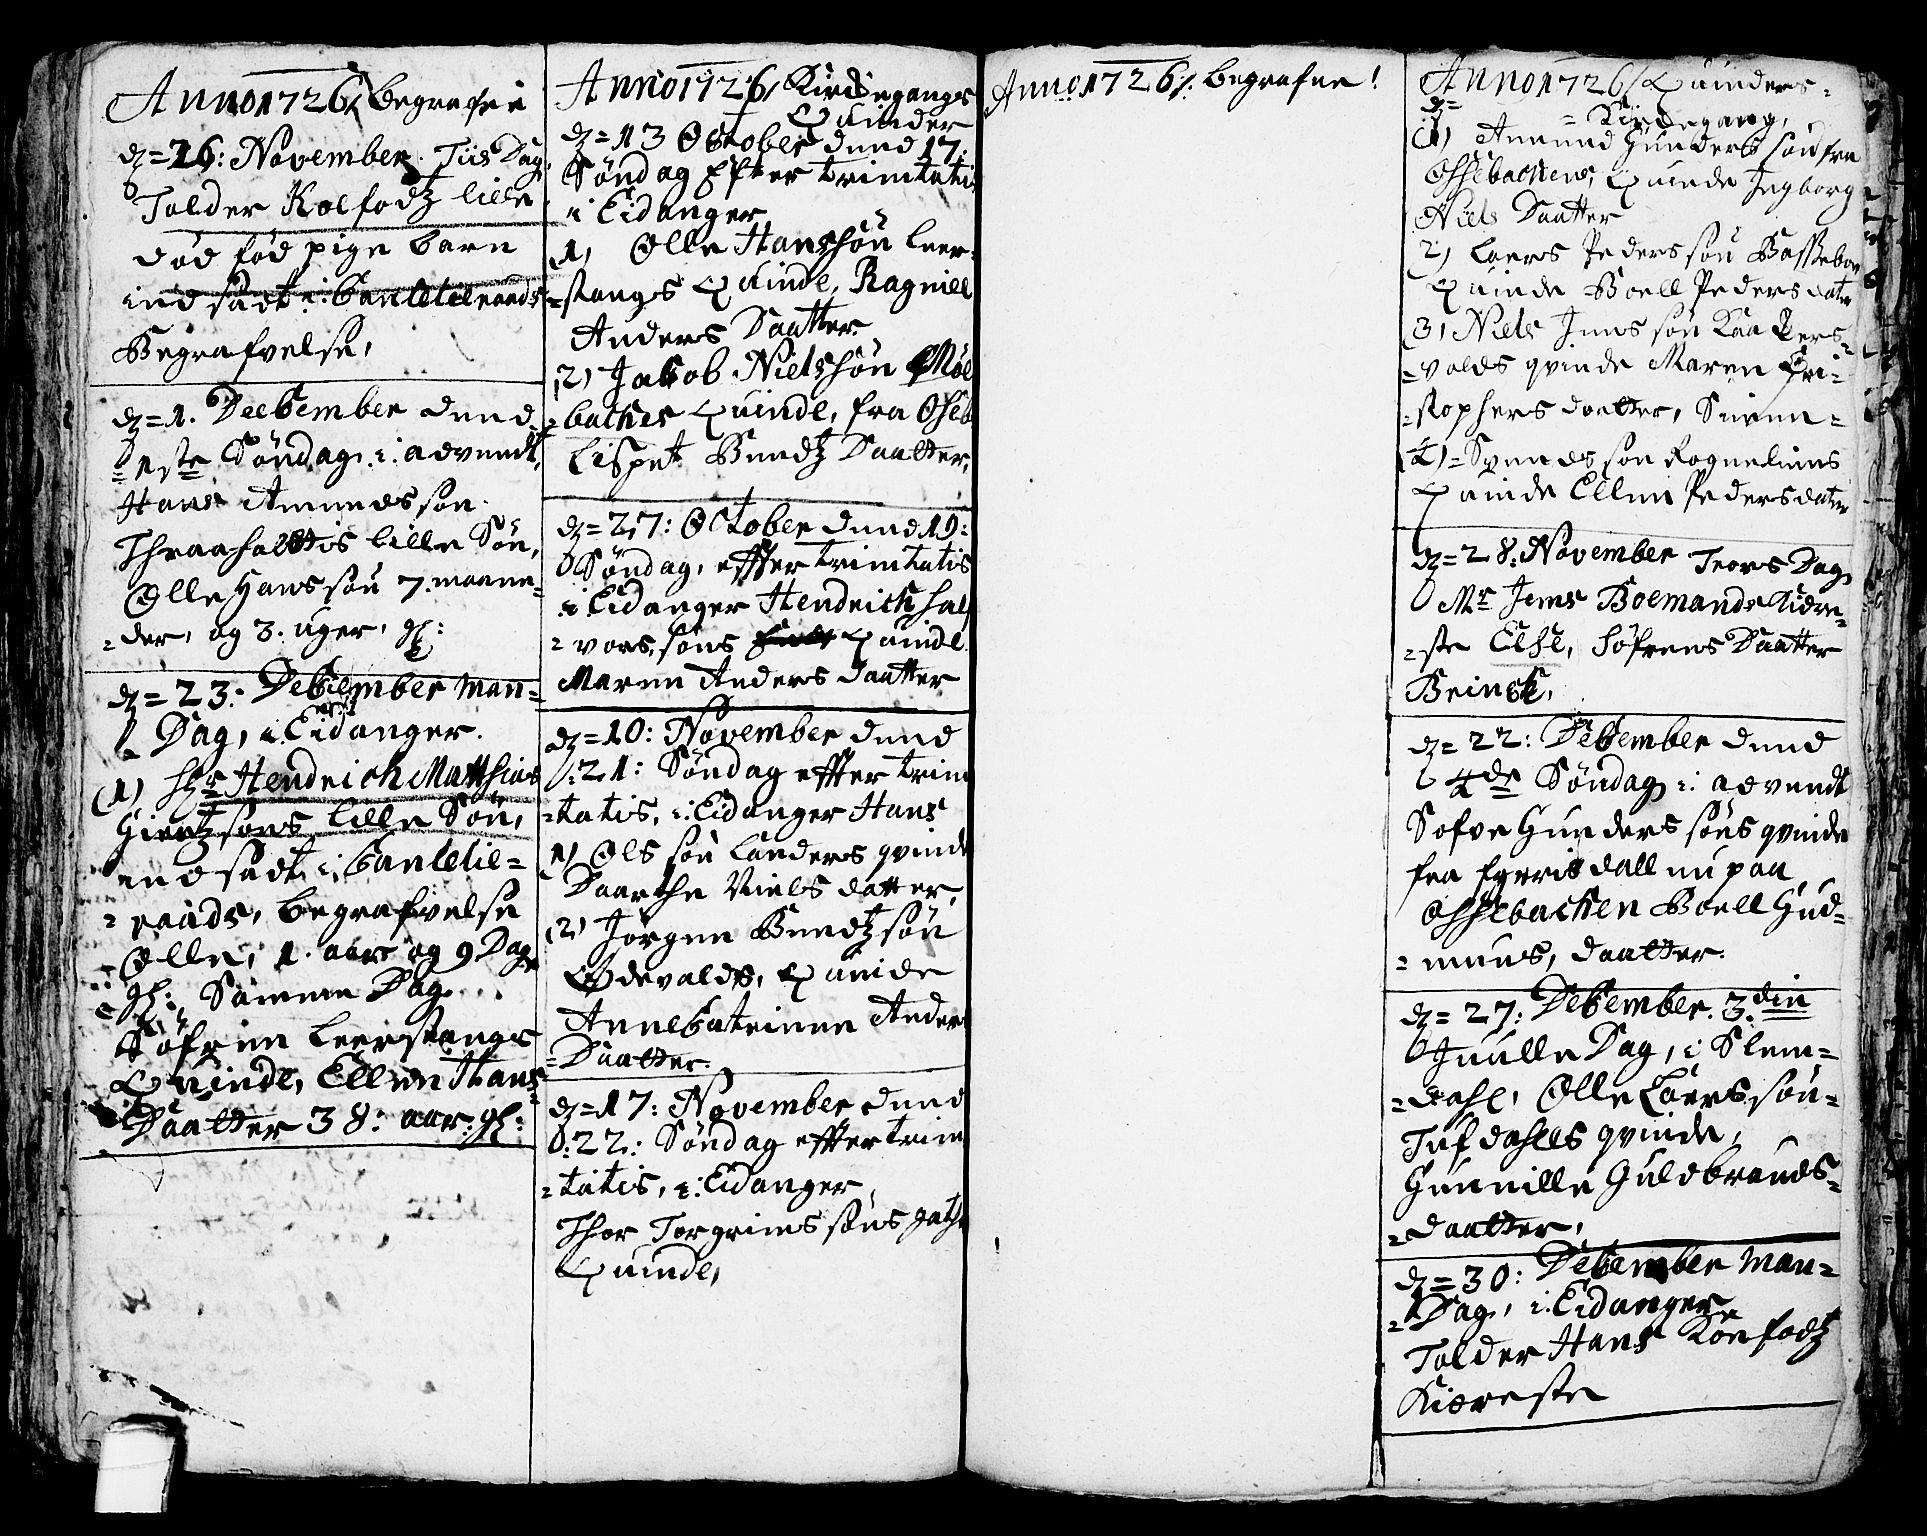 Anno 1726/ Begrafne
dz = 26: November. Tiis Dag,
Tolder Kolfodtz lille
død fød pige barn
indsadt i Cancelie raads
Begrafvelse,
dz = 1. December dend
= 1ste Søndag i advendt,
Hans Amundssøn
Thraaholttis lille Søn,
Olle Hanssøn 7. maane=
=der, og 3. uger, gl:
dz = 23: December Man=
= Dag, i Eidanger.
(1) Hr Hendrich Matthias
Giertzsøns lille Søn,
indsadt i Cancelie=
=raads, begrafvelse
Olle, 1. aar og 9 Dag,
gl: Samme Dag
Søfren Leerstangs
Quinde, Ellen Hans=
Daatter 38: aar: gl:
Anno 1726/ Kirkegangs
Quinder
dz = 13 October dend 17:
Søndag Efter trinitati
i Eidanger
1) Olle Hanssøn Leer=
=stangs Quinde, Ragnill
Anders Daatter
2) Jakob Nielssøn Møl
=bachis Quinde, fra Oseb
Lisbet Bendtz Daatter,
dz = 27: October dend 19:
Søndag, effter trinitatis
i Eidanger Hendrich Hal
=vors, søns Quinde
Maren Anders daatter
dz = 10: November dend
:21: Søndag effter trini
=tatis, i Eidanger Hans
1) Ols søn Landers qvinde
Daarthe Niels datter,
(2) Jørgen Bendtz søn
Ødevalds, Quinde
Anne Catrinne Anders
=Daatter.
dz = 17: November dend
:22: Søndag effter trini
=tatis, i Eidanger
Thor Torgrims søns
Quinde,
Anno 1726/: Begrafne!
Anno 1726/ Quinders=
= Kirkegang,
1) Amund Gunders søn fra
Ossebachens, Quinde Ingborg
Niels Daatter
2) Laers Peders søn Basseboe
Quinde Boell Peders dater
3) Niels Jens søn
=valds qvinde Maren Cri=
=stophers daatter,
(4) = Svends søn Rogneliens
Quinde Ellen Peders dater
dz = 28: November Tors Dag,
Mr Jens Boemands Kiære=
=ste Else, Søfrens Daatter
Brinck,
dz = 22: December dend
4de Søndag i advendt
Sofve Gunders søns qvinde
fra dall nu paa
Ossebachen Boell Gud=
= muns, daatter.
dz = 27: December. 3. din
Juulle Dag, i Slem=
=dahl, Olle Laers, søn=
Tufdahls qvinde,
Gunnille Guldbrands=
=daatter,
dz = 30: December Man=
=Dag, i Eidanger
Tolder Hans Kønfodtz
Kiæreste